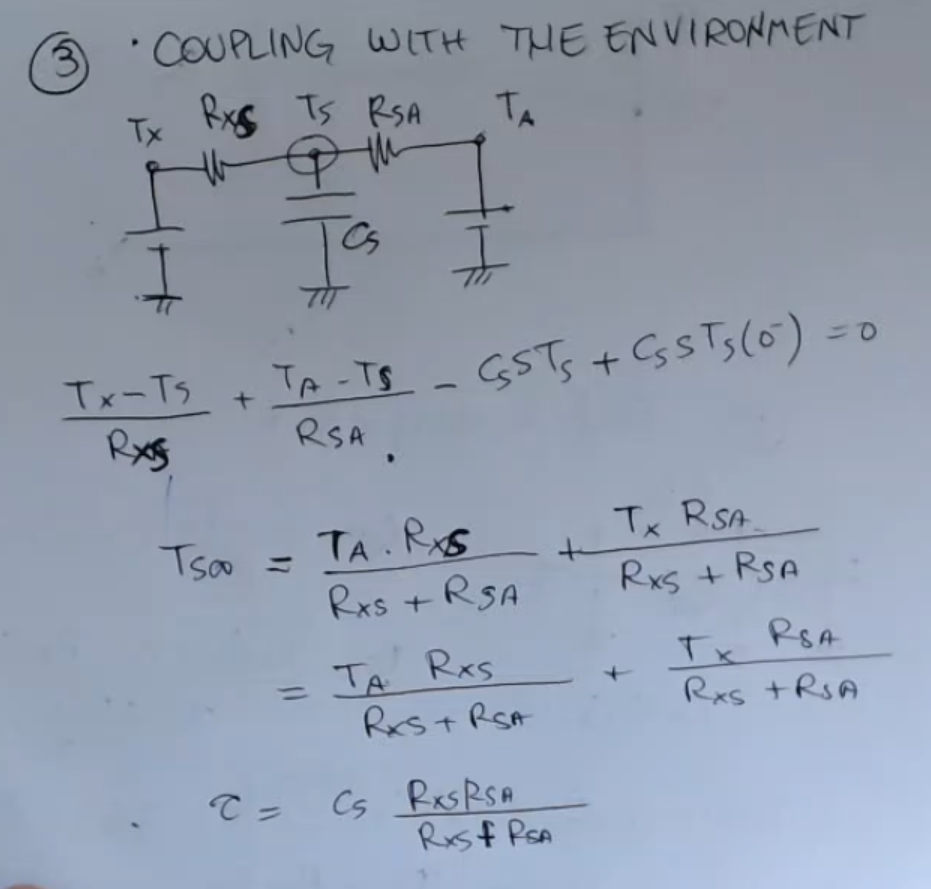 ③ · COUPLING WITH THE ENVIRONMENT
Tx RxS TS RSA TA
CS
(Tx-TS)/RxS + (TA-TS)/RSA - CSSTS + CSSTS(0⁻) = 0
TS∞ = (TA . RxS)/(RxS + RSA) + (Tx RSA)/(RxS + RSA)
= (TA RxS)/(RxS + RSA) + (Tx RSA)/(RxS + RSA)
τ = CS (RxSRSA)/(RxS + RSA)